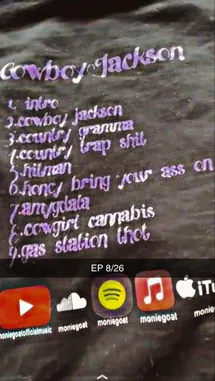 Cowboy Jackson
1. intro
2. cowboy jackson
3. country gramma
4. country trap shit
5. hitman
6. honey bring your ass on
7. amygdala
8. cowgirl cannabis
9. gas station thot
EP 8/26
moniegoatofficialmusic
moniegoat
moniegoat
moniegoat
iTu
monieg